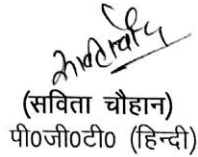 (सविता चौहान)
पी0जी0टी0 (हिन्दी)